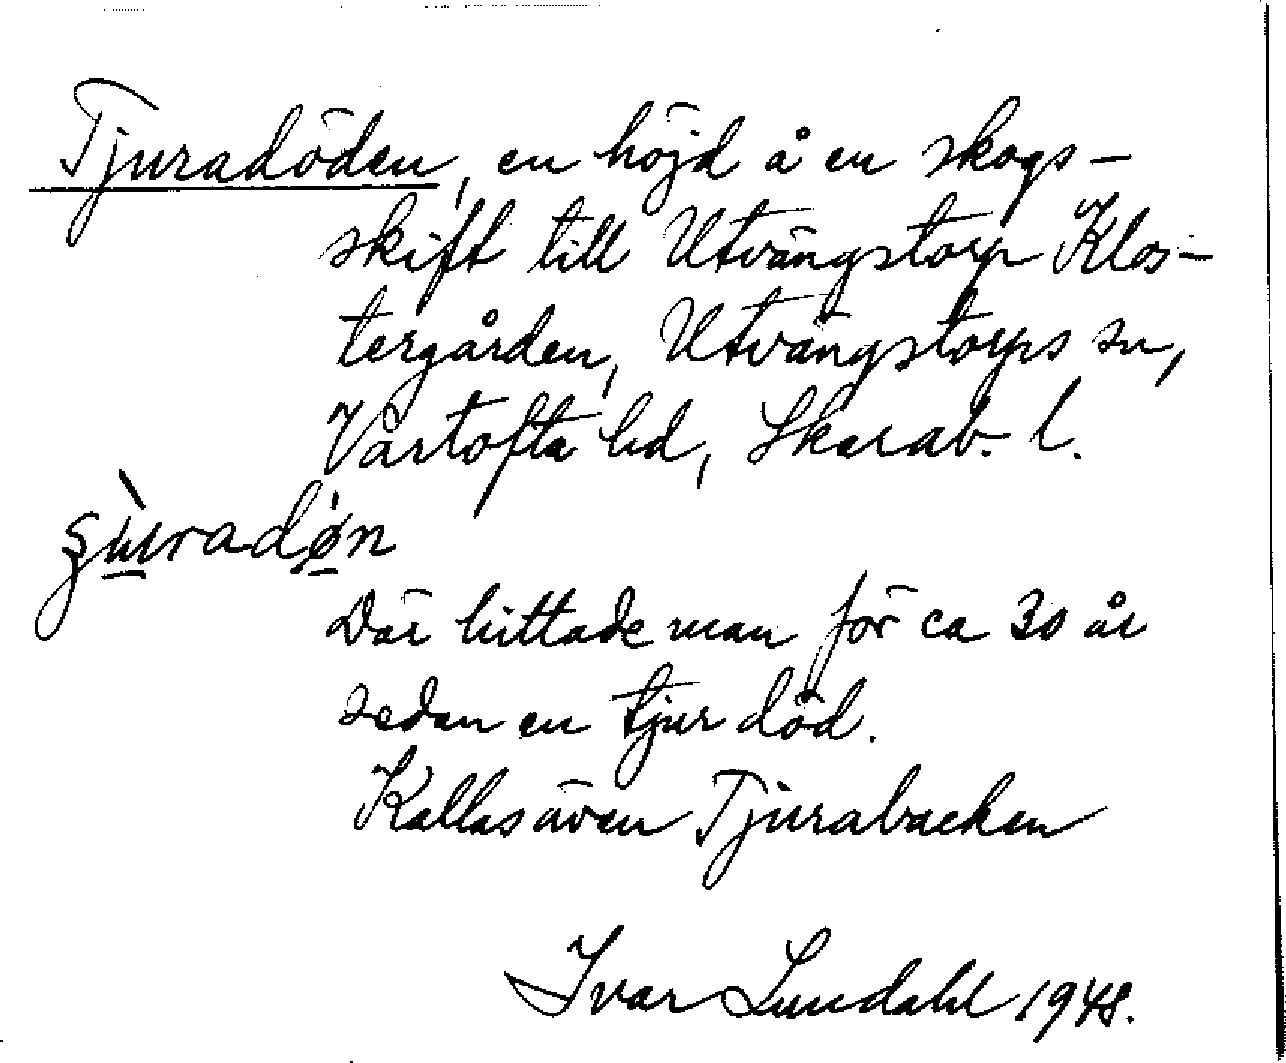 Tjuradöden, en höjd å en skogs-
skift till Utvängstorp Klos-
tergården, Utvängstorps sn,
Vartofta hd, Skarab. l.
Där hittade man för ca 30 år
sedan en tjur död.
Kallas även Tjurabacken
Ivar Lundahl 1948.